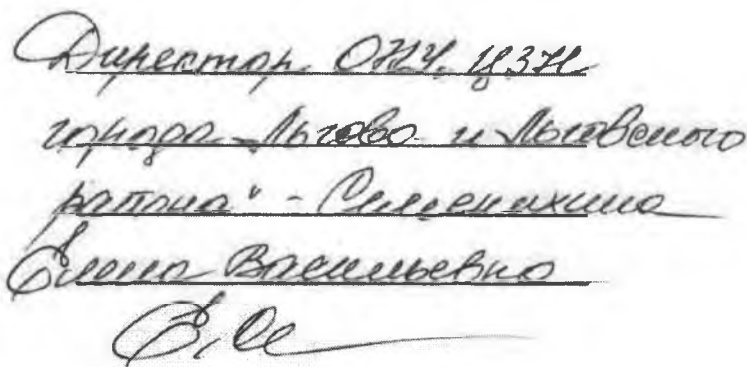 Директор ОКУ "ЦЗН
города Льгова и Льговского
района" - Семенихина
Елена Васильевна